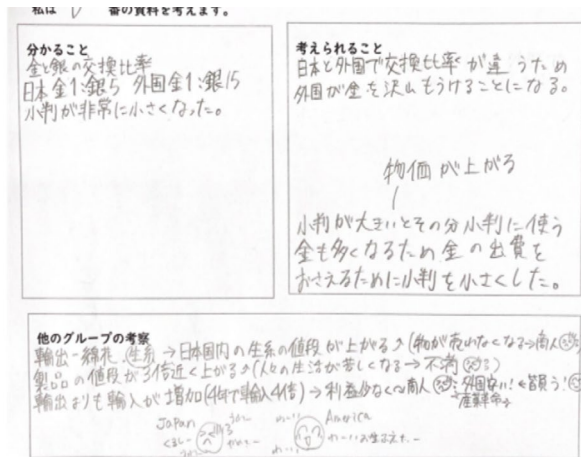 私は 番の資料を考えます。
分かること
金と銀の交換比率
日本 金1:銀5 外国金1:銀15
小判が非常に小さくなった。
考えられること
日本と外国で交換比率が違うため
外国が金を沢山もうけることになる。
物価が上がる
小判が大きいとその分小判に使う
金も多くなるため金の出費を
おさえるために小判を小さくした。
他のグループの考察
輸出-綿花、生糸→日本国内の生糸の値段が上がる↗(物が売れなくなる→商人
製品の値段が3倍近く上がる↗(人々の生活が苦しくなる→不満
輸出よりも輸入が増加(4年で輸入4倍)→利益少なく~商人 外国安い!←皆買う!
産業革命
Japan
America